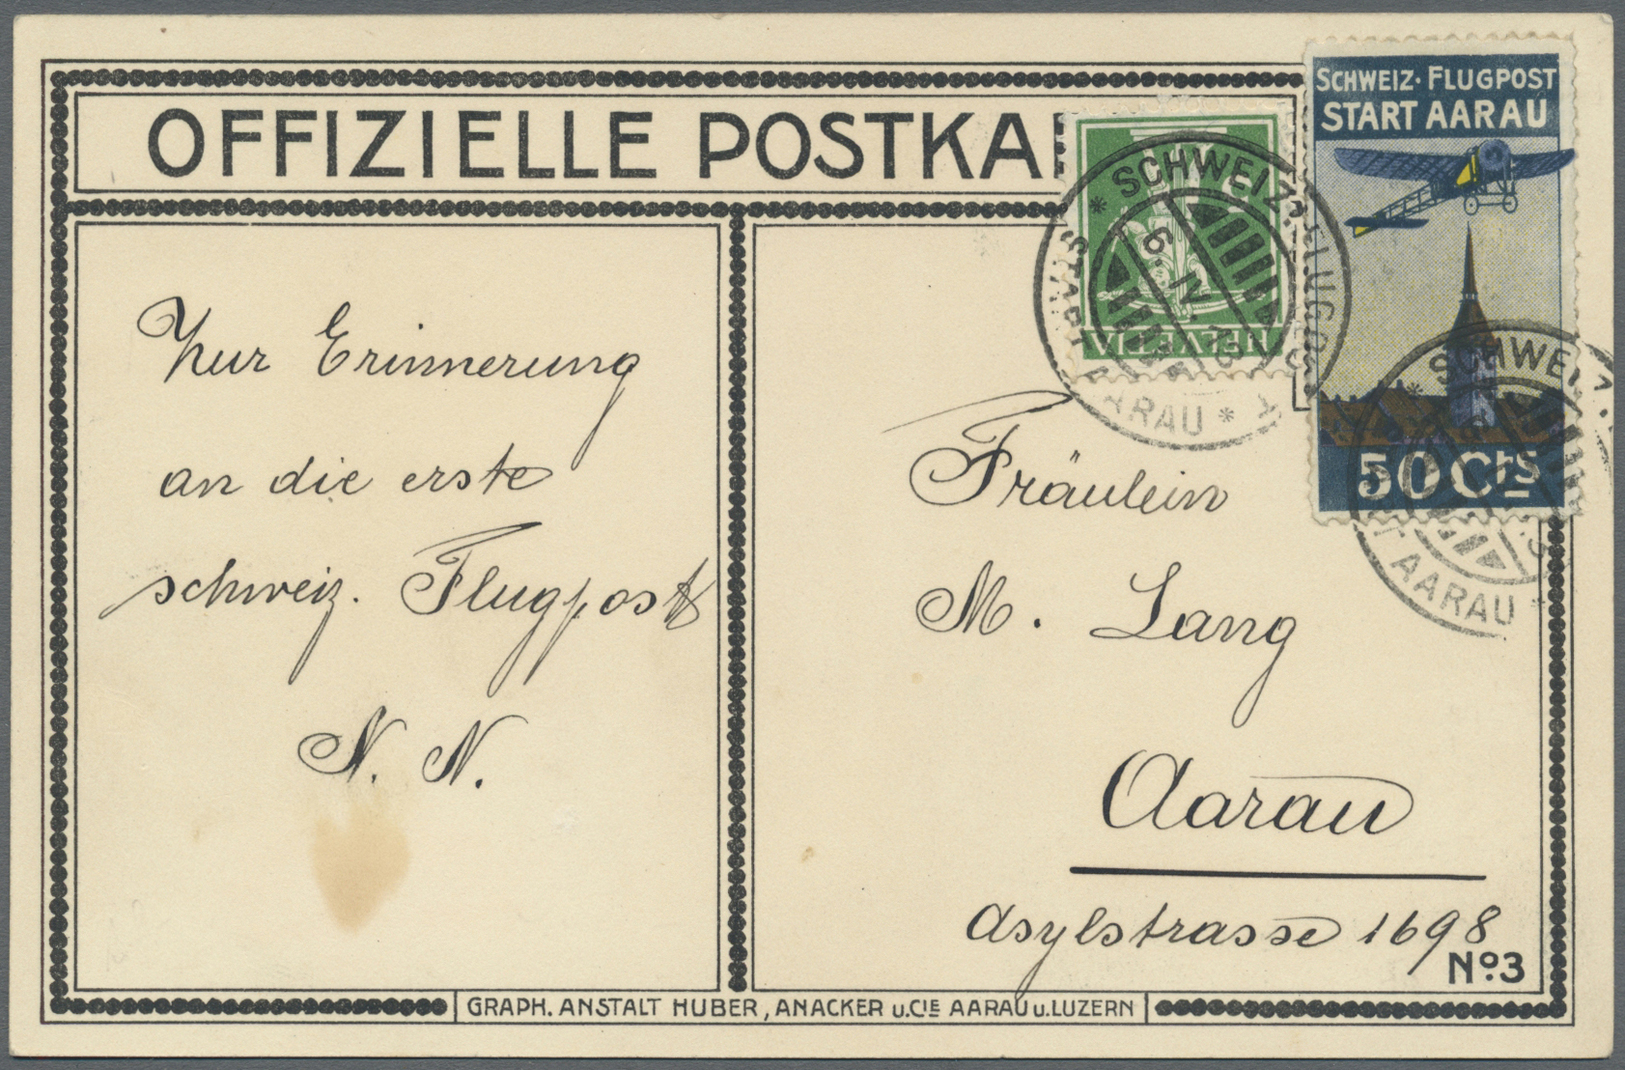 OFFIZIELLE POSTKA
SCHWEIZ. FLUGPOST
START AARAU
50 Cts
HELVETIA
* SCHWEIZ. FLUGPOST
START AARAU *
6. IV. 13
SCHWEIZ.
AARAU *
Zur Erinnerung
an die erste
schweiz. Flugpost
N. N.
Fräulein
M. Lang
Aarau
Asylstrasse 1698
No. 3
GRAPH. ANSTALT HUBER, ANACKER u. CIE AARAU u. LUZERN